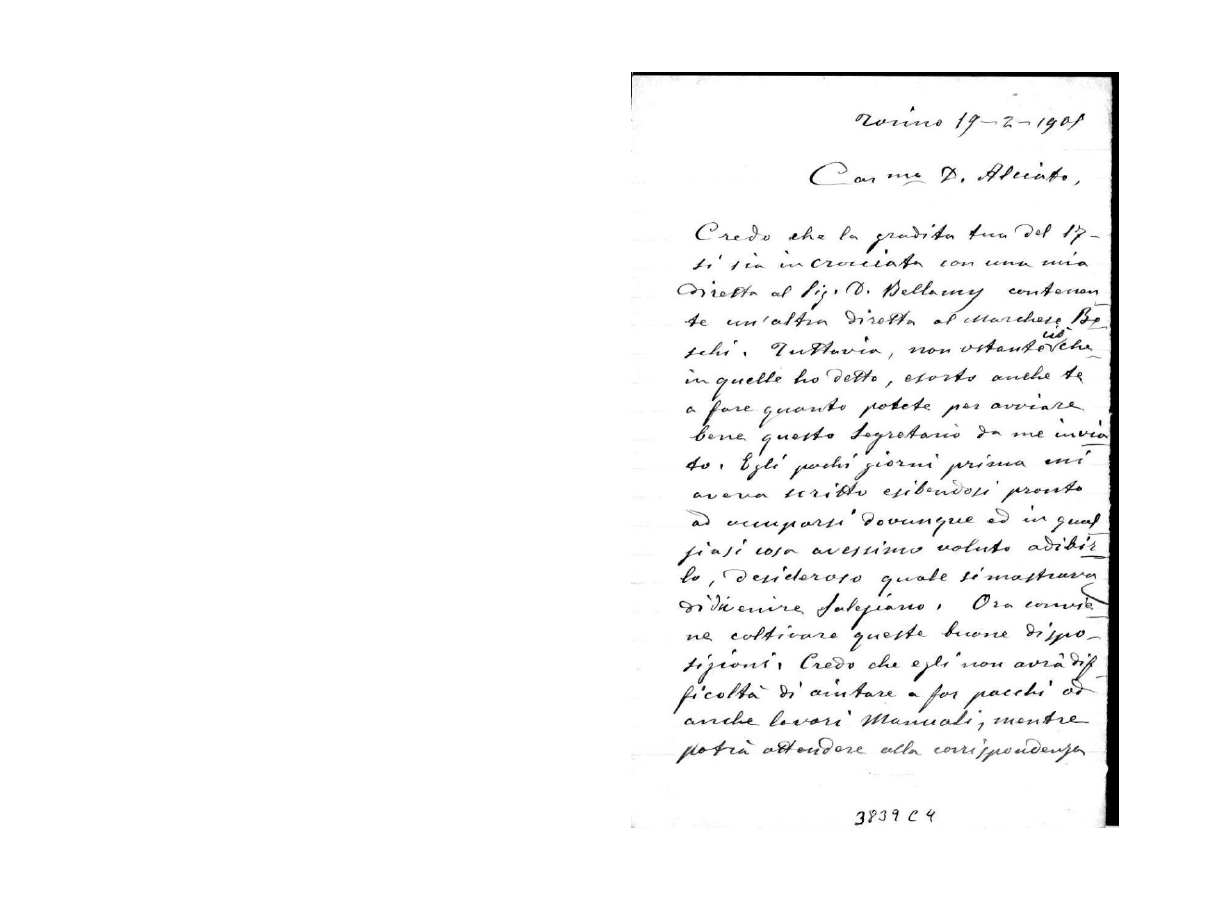 Torino 19-2-1905
Car.mo D. Alciato,
Credo che la gradita tua del 17-
si sia incrocciata con una mia
diretta al Sig. D. Bellamy contenen
te un'altra diretta al Marchese Be
schi. Tuttavia, non ostante ciò che
in quelle ho detto, esorto anche te
a fare quanto potete per avviare
bene questo Segretario da me invia
to. Egli pochi giorni prima mi
aveva scritto esibendosi pronto
ad occuparsi dovunque ed in qual
siasi cosa avessimo voluto adibir
lo, desideroso quale si mostrava
di divenire Salesiano. Ora convie
ne coltivare queste buone dispo-
sizioni. Credo che egli non avrà dif
ficoltà di aiutare a far pacchi od
anche lavori Manuali, mentre
potrà attendere alla corrispondenza
3839 C 4